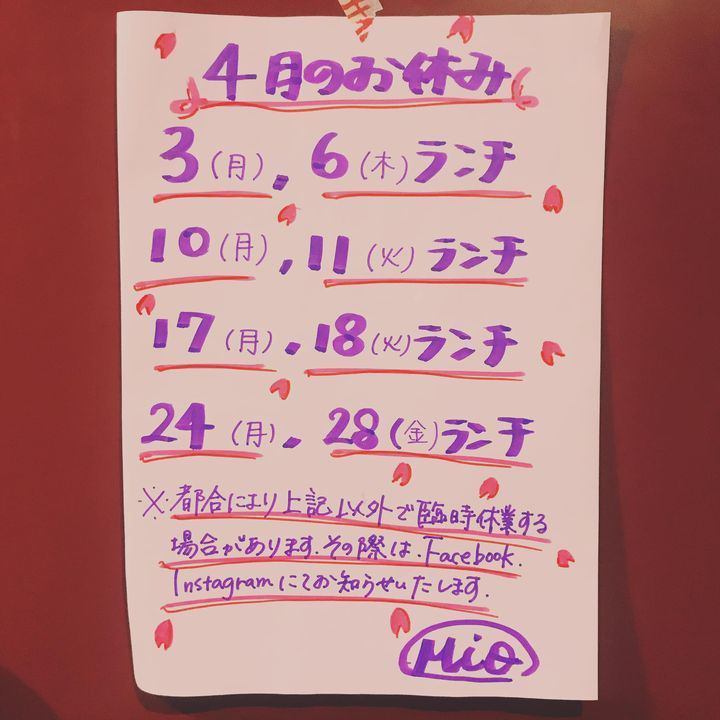 4月のお休み
3(月), 6(木)ランチ
10(月), 11(火)ランチ
17(月), 18(火)ランチ
24(月), 28(金)ランチ
※都合により上記以外で臨時休業する
場合があります.その際は.Facebook.
Instagramにてお知らせいたします.
Mio